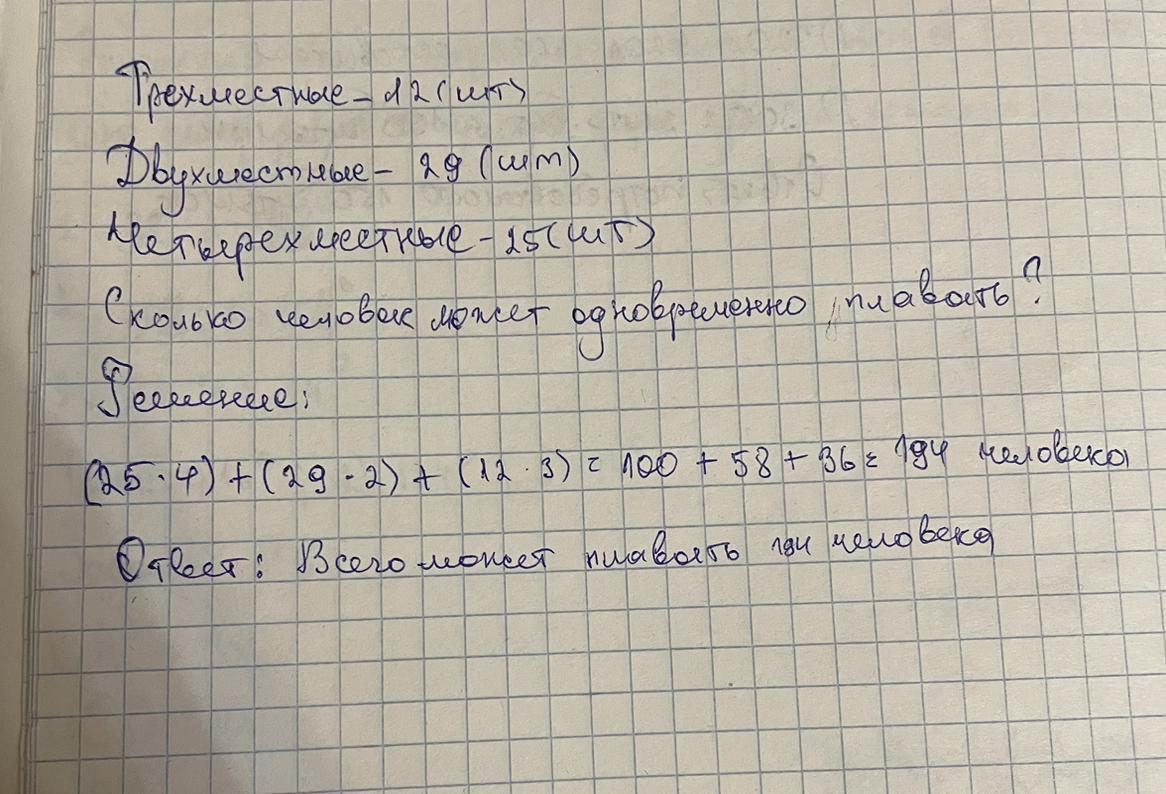 Трехместные - 12 (шт)
Двухместные - 29 (шт)
Четырехместные - 25 (шт)
Сколько человек может одновременно плавать?
Решение:
(25 · 4) + (29 · 2) + (12 · 3) = 100 + 58 + 36 = 194 человека
Ответ: Всего может плавать 194 человека